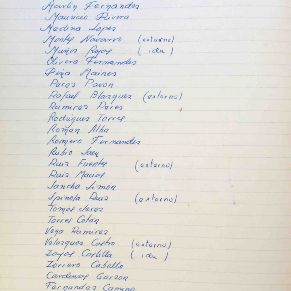 Martín Fernandes
Mauricio Rivera
Medina Lopes
Monty Navarro (externo)
Muños Rojas (idem)
Olivera Fernandes
Peña Maines
Peres Pavon
Rafael Blasques (externo)
Ramires Peres
Rodrigues Torres
Román Alba
Romero Fernandes
Rubio
Ruiz Fuente (externo)
Ruiz Maciel
Sancho Simon
Spinola Ruiz (externo)
Tomas Jerez
Torres Catán
Vega Ramires
Velasques Castro (externo)
Castilla
Zorrero Cabello
Cardenas Garzon
Fernandes Camino